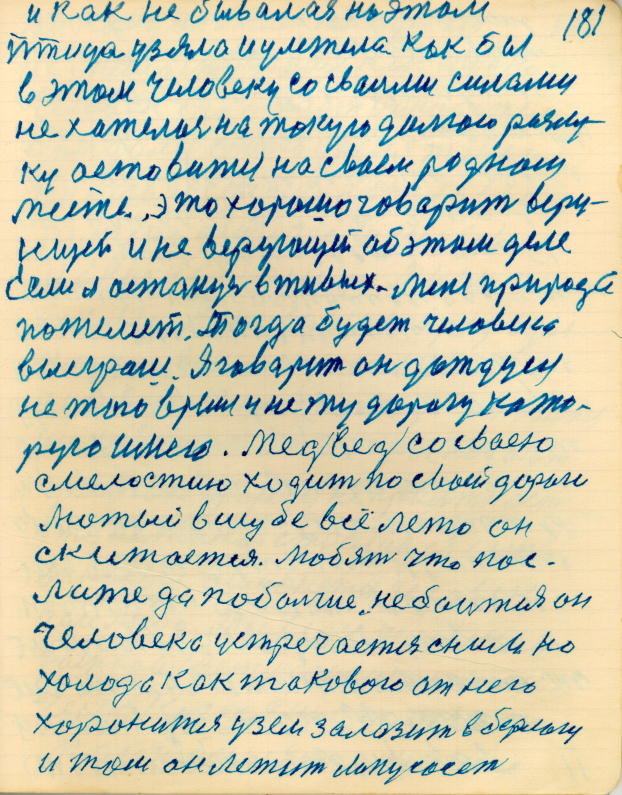 181
и как не бывалая на этом
птица узяла и улетела. Как бы
в этом человеку со сваими силами
не хателося на такую далгою разлу-
ку астоватися на сваем родном
месте. Это хорошо говарит веру-
ющей и не верующей об этом деле
если я остануся в живых. Мене природа
пожелеит. Тогда будет человека
выеграш. Я говарит он дождуся
не того время и не ту дорогу като-
руго имего. Медвед со сваею
смелостию ходит по своей дороги
лютый в шубе всё лето он
скитается. Любят что пос-
лаже да поболше, не боится он
человека устречается сним но
холода как такового от него
хоронится узем залазит в берлогу
и там он лежит лапу сосет